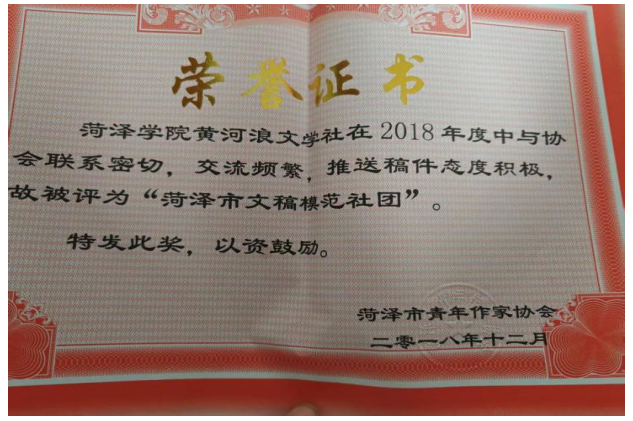 荣誉证书
菏泽学院黄河浪文学社在2018年度中与协
会联系密切，交流频繁，推送稿件态度积极，
故被评为“菏泽市文稿模范社团”。
特发此奖，以资鼓励。
菏泽市青年作家协会
二零一八年十二月